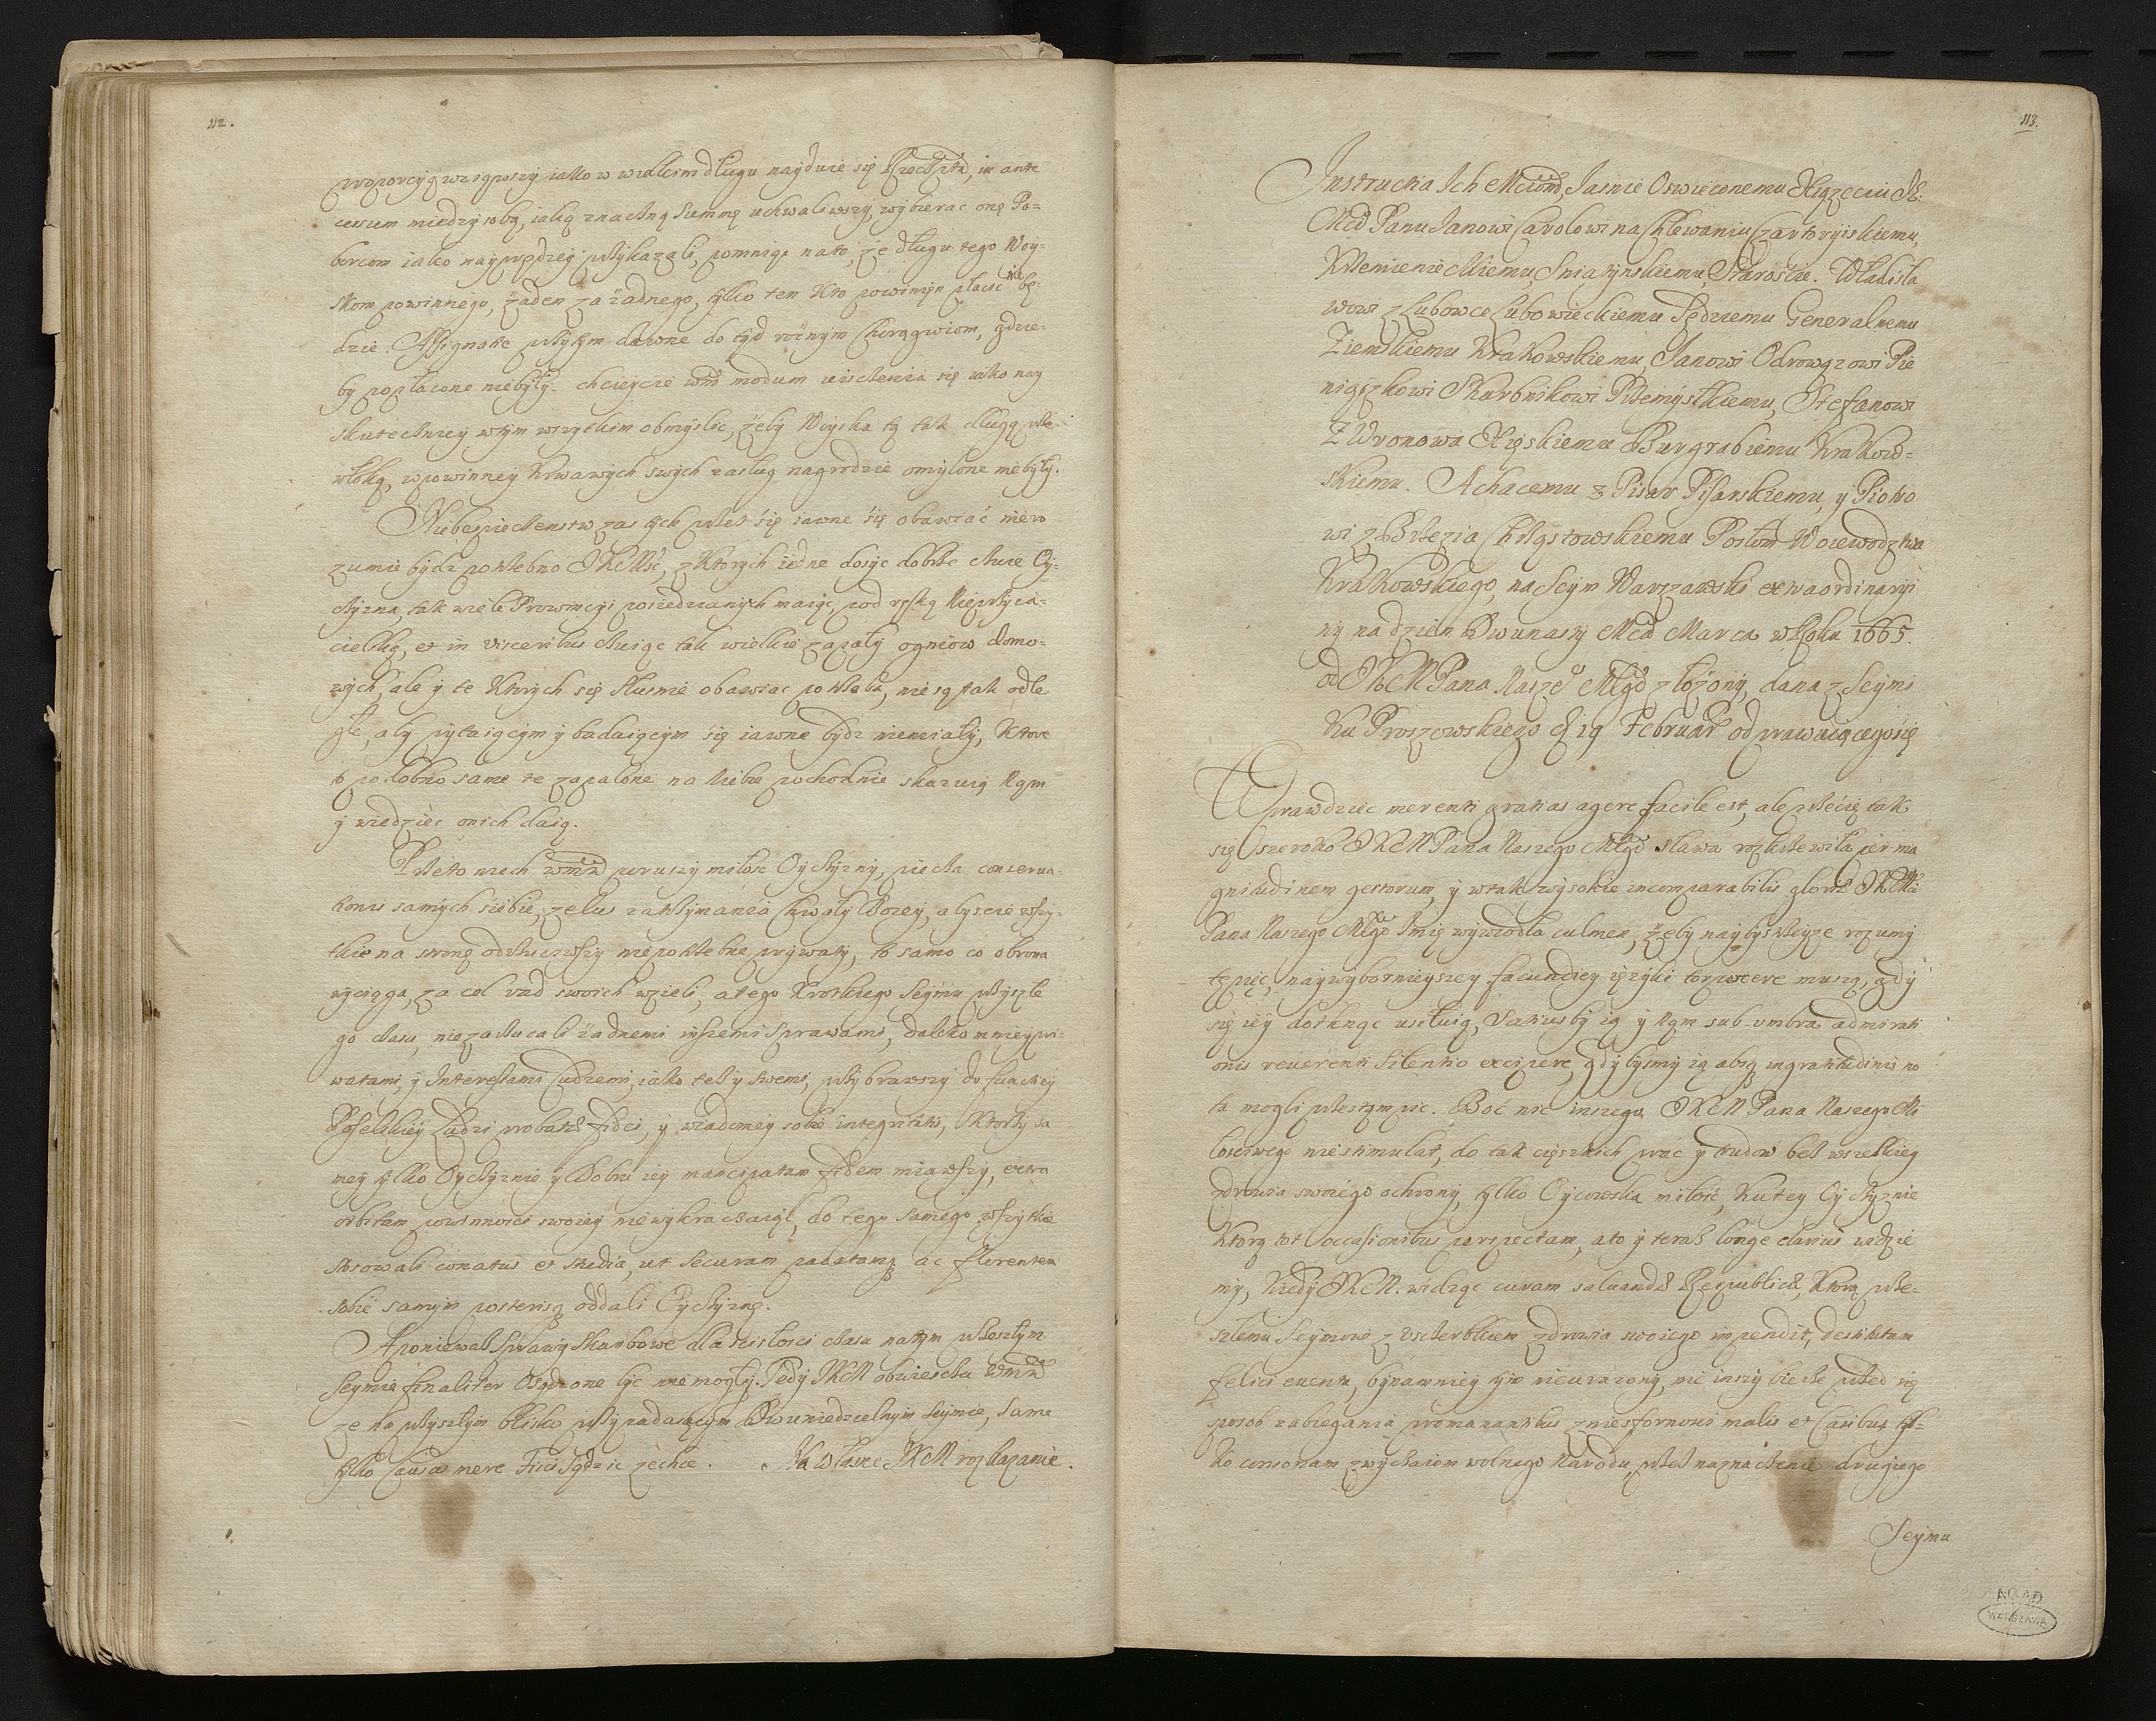 112.
proporcyą wziąwszy iako w wielkim długu nayduie się RzeczPta, in ante
cessum miedzy sobą, iaką znaczną summę uchwaliwszy, wybierac onę Po=
borcom iako nayprędzey przykazali, pomniąc na to, że długu tego Woy=
skom powinnego, żaden za żadnego, tylko ten kto powinien płacić nie bę=
dzie. Assignatie przytym dawne do tyd roznym Chorągwiom, gdzie=
by popłacone niebyły. chcieycie modum uiszczenia się iako nay
skuteczniey wtym wszytkim obmyslic, żeby Woyska tą tak długą prze=
włoką, wpowinney krwawych swych zasług nagrodzie omylone niebyły.
Niebezpieczenstw zas tych przez się iawne się obawiać niero
zumie bydz potrzebno JKMsc, z ktorych iedne dosyc dobrze czuie Oy=
czyzna, tak wiele Prowincyi posiedzianych maiąc pod ręką Nieprzyia=
cielską, et in visceribus czuiąc tak wielkie zapały ogniow domo=
wych, ale y te ktorych się słusnie obawiac potrzeba, nie są tak odle
głe, aby pytaiącym y badaiącym się iawne bydz niemiały, ktore
podobno same te zapalone na Niebie pochodnie skazuią Nam
y wiedziec onich daią.
Przeto niech wmw poruszy miłosc Oyczyzny, piecza conserua=
tionis samych siebie, zelus zatrzymania Chwały Bozey, abyscie wszy=
tkie na stronę odrzuciwszy niepotrzebne prywaty, to samo co obrona
wyciąga, za cel rad swoich wzieli, a tego krotkiego Seymu przyszłe
go czasu, niezatrucali żadnemi inszemi sprawami, daleko mniey pri=
watami, y Interessami Cudzemi, iako też y swemi, przybrawszy do functiey
Poselskiey Ludzi probatæ fidei, y wiadomey sobie integritatis, ktorzy sa
mey tylko Oyczyznie y Dobru iey mancipatam fidem miawszy, extra
orbitam powinnosci swoiey niewykraczaiąc, do tego samego wszytkie
stosowali conatus et studia, ut securam pacatamq ac florentem
sobie samym posterisq oddali Oyczyznę.
A poniewasz Sprawy Skarbowe dla scisłosci czasu na tym przeszłym
Seymie finaliter Osądzone byc nie mogły. Tedy JKM obwieszcza wmw
ze na przyszłym blisko przypadaiącym Dwuniedzielnym Seymie, same
tylko causas mere Fisci sądzic zechce. Na własne JKM rozkazanie.
113.
Instructia Ich Mciom, Jasnie Oswieconemu Xiązęciu JE:
Mci Panu Janowi Carolowi na Chlewaniu Czartoryiskiemu,
Krzemienieckiemu, Sniatynskiemu, Staroscie. Władisła
wowi z Lubowce Lubowieckiemu Sędziemu Generalnemu
Ziemskiemu Krakowskiemu, Janowi Odrowązowi Pie
niązkowi Skarbnikowi Przemyslkiemu, Stefanowi
Z Wronowa Xięskiemu Burgrabiemu Krakow=
skiemu. Achacemu z Pisar Pisarskiemu, y Piotro
wi z Brzezia Chrząstowskiemu Posłom Woiewodztwa
Krakowskiego, na Seym Warszawski extraordinaryi
ny na dzien Dwunasty Mca Marca w Roku 1665.
od JKM Pana Nasze° Młgo złożony, dana z Seymi
ku Proszowskiego D 19 Februar odprawuiącegosię
Wprawdziec merenti gratias agere facile est, ale przecię tak
się szeroko JKM Pana Naszego Młgo sława rozkrzewiła per ma
gnitudinem gestorum, y wtak wysokie incomparabilis gloriæ JKMci
Pana Naszego Młgo Imię wywiodła culmen, żeby naybystrzeysze rozumy
tępieć, naywybornieyszey facundiey ięzyki torpescere muszą, gdy
się iey dotknąc usiłuią, Satius by ią y Nam sub umbra admirati
onis reuerenti silentio excipere, gdybysmy ią absq ingratitudinis no
ta mogli przestąmpic. Boć nic inszego JKM Pana Naszego Mi
łosciwego niestimulat, do tak cięszkich prac y trudow bez wszelkiey
zdrowia swoiego ochrony, tylko Oycowska miłość, ku tey Oyczyznie
ktorą tot occasionibus perspectam, a to y teraz longe clarius widzie
my, kiedy JKM. widząc curam saluandæ Reipublicæ, ktorą prze=
szłemu Seymowi z uszczerbkiem zdrowia swoiego impendit, destitutam
felici euentu, bynamniey tym nieurazony, nie inszy bierze przed się
sposob zabiegania promanantibus z niesfornosci malis et Casibus tyl=
ko consonam zwyczaiom wolnego Narodu, przez naznaczenie drugiego
Seymu
AGAD
WARSZAWA